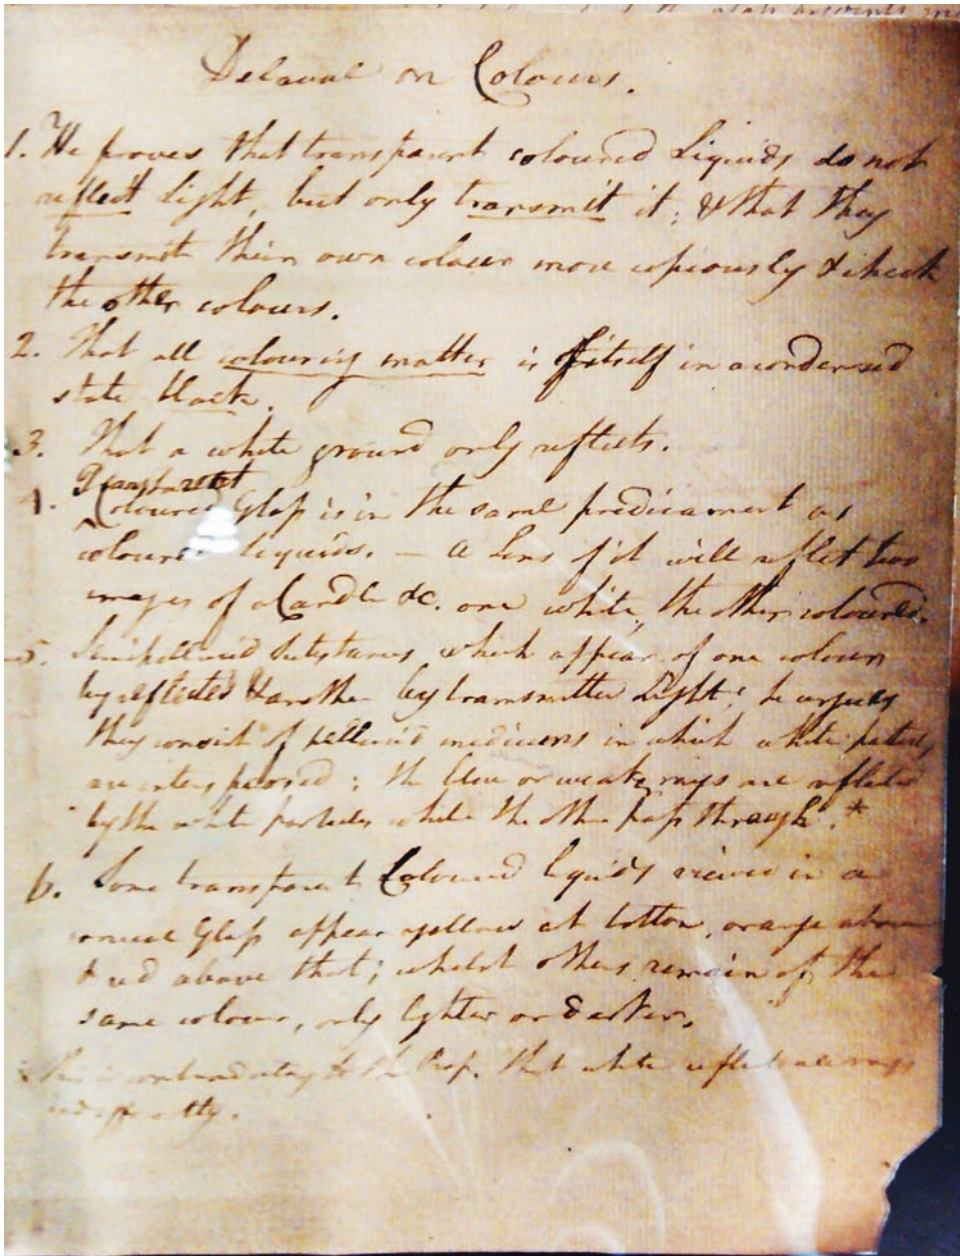 Delaval on Colours.
1. He proves that transparent coloured Liquids do not
reflect light, but only transmit it; & that they
transmit their own colour more copiously & check
the other colours.
2. That all colouring matter is of itself in a condensed
state black.
3. That a white ground only reflects.
Transparent
4. Coloured Glass is in the same predicament as
coloured liquids. — A Lens of it will reflect two
images of a Candle &c. one white, the other coloured.
5. Semipellucid Substances which appear of one colour
by reflected & another by transmitted Light; he
they consist of pellucid mediums in which white particles
are interspersed; the blue or weaker rays are reflected
by the white particles while the other pass through. *
6. Some transparent Coloured liquids viewed in a
conical Glass appear yellow at bottom, orange above
& red above that; whilst others remain of the
same colour, only lighter or darker.
This is contradictory to the Prop. that white reflects all rays